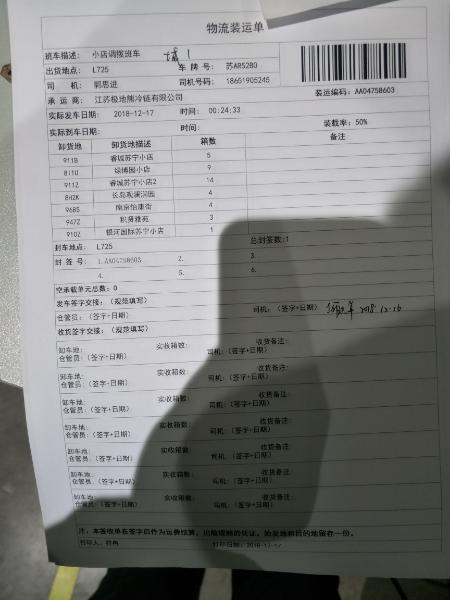 物流装运单
班车描述: 小店调拨班车
出货地点: L725 车 牌 号: 苏AR52B0
司 机: 郭思进 司机号码: 18651905245
承 运 商: 江苏极地熊冷链有限公司 装运编码: AA04758603
实际发车日期: 2018-12-17 时间: 00:24:33
实际到车日期: 时间: 装载率: 50%
卸货地 卸货地描述 箱数 备注
911B 睿城苏宁小店 5
8110 绿博园小店 9
911Z 睿城苏宁小店2 14
8H2K 长岛观澜润园 4
968S 南京怡康街 4
947Z 积贤雅苑 3
910Z 银河国际苏宁小店 1
封车地点: L725 总封签数:1
封 签 号: 1.AA04758603 2. 3.
4. 5. 6.
空承载单元总数: 0
发车签字交接: (规范填写)
仓管员: (签字+日期) 司机: (签字+日期) 2018.12.16
收货签字交接: (规范填写)
卸车地: 实收箱数: 收货备注:
仓管员: (签字+日期) 司机: (签字+日期)
卸车地: 实收箱数: 收货备注:
仓管员: (签字+日期) 司机: (签字+日期)
卸车地: 实收箱数: 收货备注:
仓管员: (签字+日期) 司机: (签字+日期)
卸车地: 实收箱数: 收货备注:
仓管员: (签字+日期) 司机: (签字+日期)
卸车地: 实收箱数: 收货备注:
仓管员: (签字+日期) 司机: (签字+日期)
卸车地: 实收箱数: 收货备注:
仓管员: (签字+日期) 司机: (签字+日期)
卸车地: 实收箱数: 收货备注:
仓管员: (签字+日期) 司机: (签字+日期)
注: 本签收单在签字后作为运费结算、出险理赔的凭证。始发地和目的地留存一份。
打印人: 打印日期: 2018-12-17